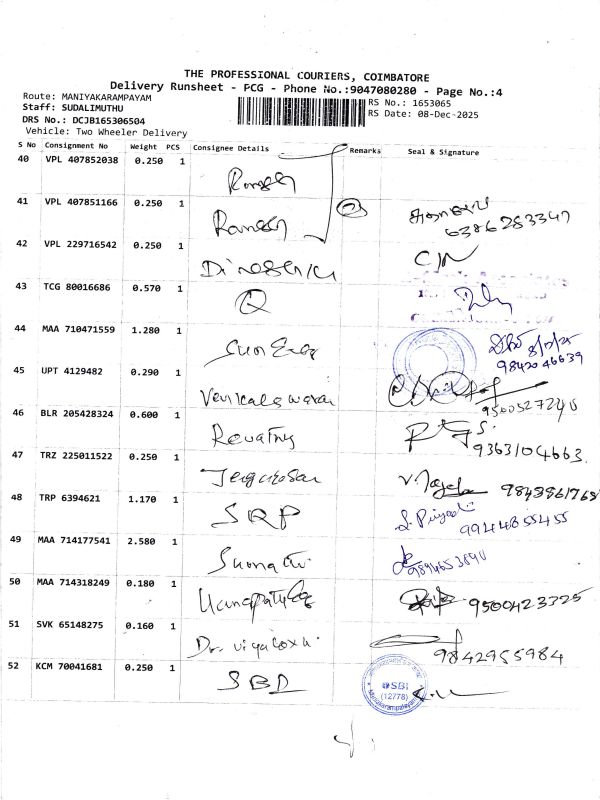 THE PROFESSIONAL COURIERS, COIMBATORE
Delivery Runsheet - PCG - Phone No.:9047080280 - Page No.:4
Route: MANIYAKARAMPAYAM
Staff: SUDALIMUTHU
DRS No.: DCJB165306504
Vehicle: Two Wheeler Delivery
RS No.: 1653065
RS Date: 08-Dec-2025
S No Consignment No Weight PCS Consignee Details Remarks Seal & Signature
40 VPL 407852038 0.250 1 Ramesh
41 VPL 407851166 0.250 1 Ramesh 6386283347
42 VPL 229716542 0.250 1
43 TCG 80016686 0.570 1
44 MAA 710471559 1.280 1 9842046639
45 UPT 4129482 0.290 1 9500527240
46 BLR 205428324 0.600 1 Revathy 9363104663
47 TRZ 225011522 0.250 1 9843961768
48 TRP 6394621 1.170 1 SRP 9944855455
49 MAA 714177541 2.580 1 Sumathi 9894653890
50 MAA 714318249 0.180 1 9500423325
51 SVK 65148275 0.160 1 9842955984
52 KCM 70041681 0.250 1 SBI
SBI
(12778)